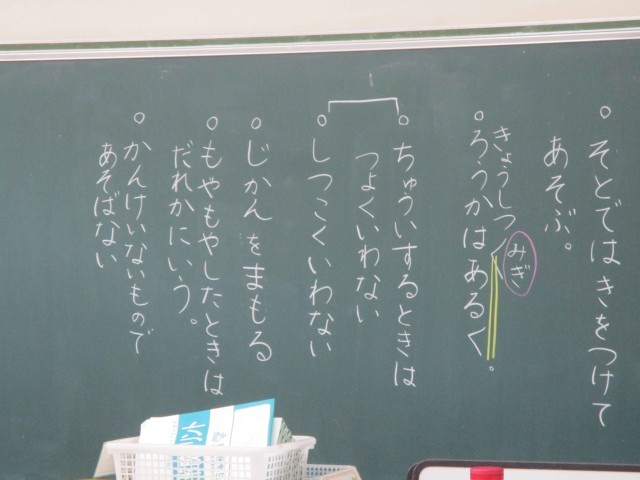 ○そとでは きをつけて
あそぶ。
○ろうかはあるく。
きょうしつ
みぎ
○ちゅういするときは
つよくいわない
○しつこくいわない
○じかんをまもる
○もやもやしたときは
だれかにいう。
○かんけいないもので
あそばない